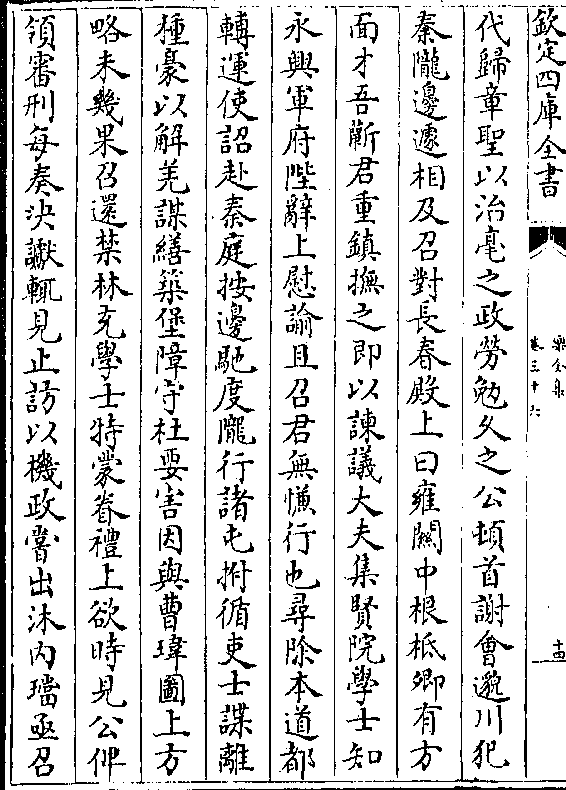 欽定四庫全書
樂全集
卷三十六
十四
代歸章聖以治亳之政勞勉久之公頓首謝會邈川犯
秦隴邊遽相及召對長春殿上曰雍關中根柢卿有方
面才吾蘄君重鎮撫之即以諫議大夫集賢院學士知
永興軍府陛辭上慰諭且召君無慊行也尋除本道都
轉運使詔赴秦庭按邊馳度隴行諸屯拊循吏士諜離
種豪以解羌謀繕築堡障守杜要害因與曹瑋圖上方
略未幾果召還禁林充學士特蒙眷禮上欲時見公俾
領審刑每奏決讞輒見止訪以機政嘗出沐内璫亟召